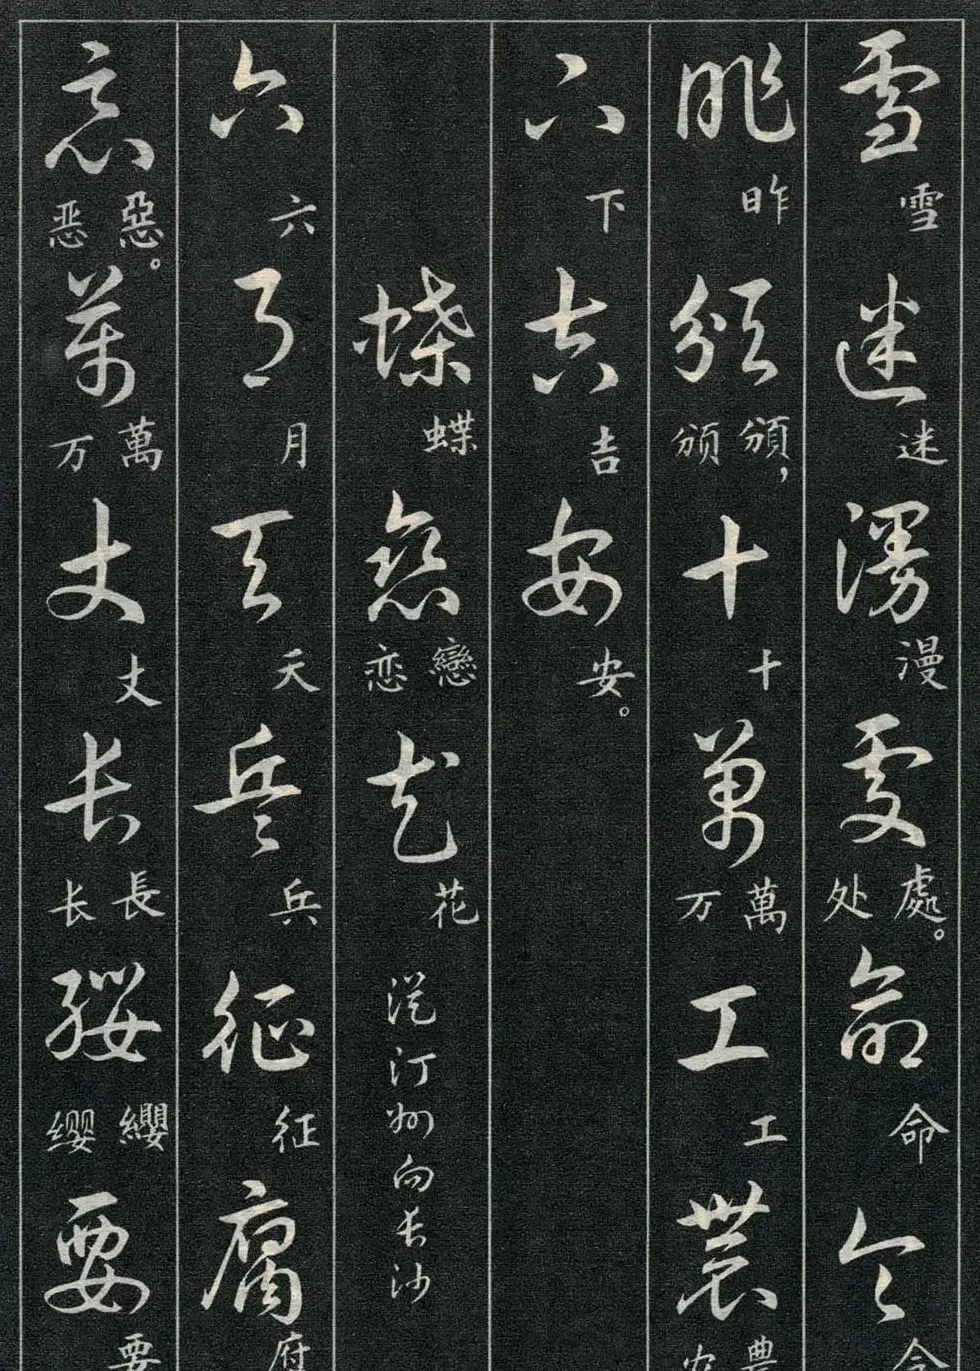 雪 雪 迷 迷 漫 漫 處 處。处 命 命 令 令
昨 昨 頒 頒，颁 十 十 萬 萬 万 工 工 農 農 农
下 下 吉 吉 安 安。
蝶 蝶 戀 戀 恋 花 花 從汀州向长沙
六 六 月 月 天 天 兵 兵 征 征 腐 腐
惡 惡。恶 萬 萬 万 丈 丈 长 長 长 纓 纓 缨 要 要